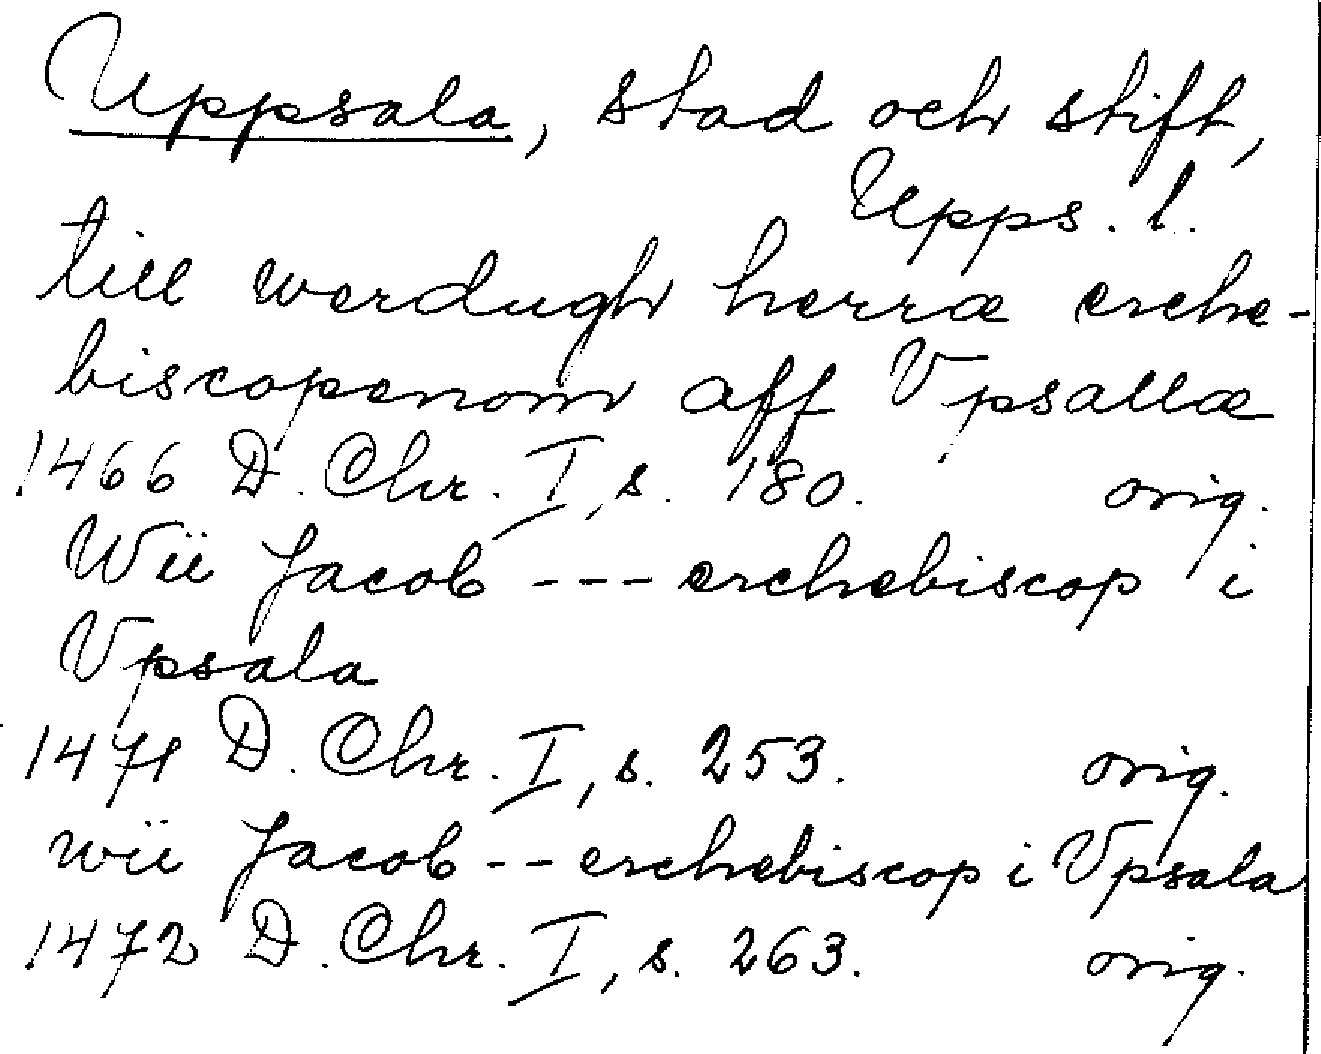 Uppsala, stad och stift,
Upps. l.
till werdugh herræ erche-
biscopenom aff Vpsallæ
1466 D. Chr. I, s. 180. orig.
Wii Jacob --- erchebiscop i
Vpsala
1471 D. Chr. I, s. 253. orig.
wii Jacob -- erchebiscop i Vpsala
1472 D. Chr. I, s. 263. orig.